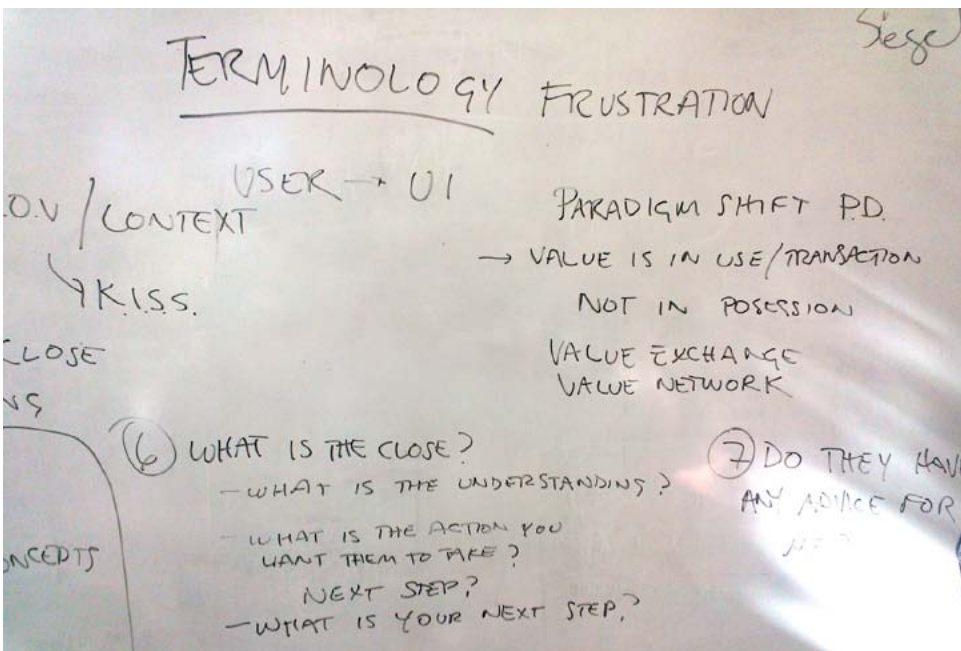 TERMINOLOGY FRUSTRATION
USER → UI
O.V / CONTEXT
K.I.S.S.
CLOSE
PARADIGM SHIFT P.D.
→ VALUE IS IN USE/TRANSACTION
NOT IN POSESSION
VALUE EXCHANGE
VALUE NETWORK
6 WHAT IS THE CLOSE?
- WHAT IS THE UNDERSTANDING?
- WHAT IS THE ACTION YOU
WANT THEM TO TAKE?
NEXT STEP?
- WHAT IS YOUR NEXT STEP?
7 DO THEY HAV
ANY ADVICE FOR
NCEPTS